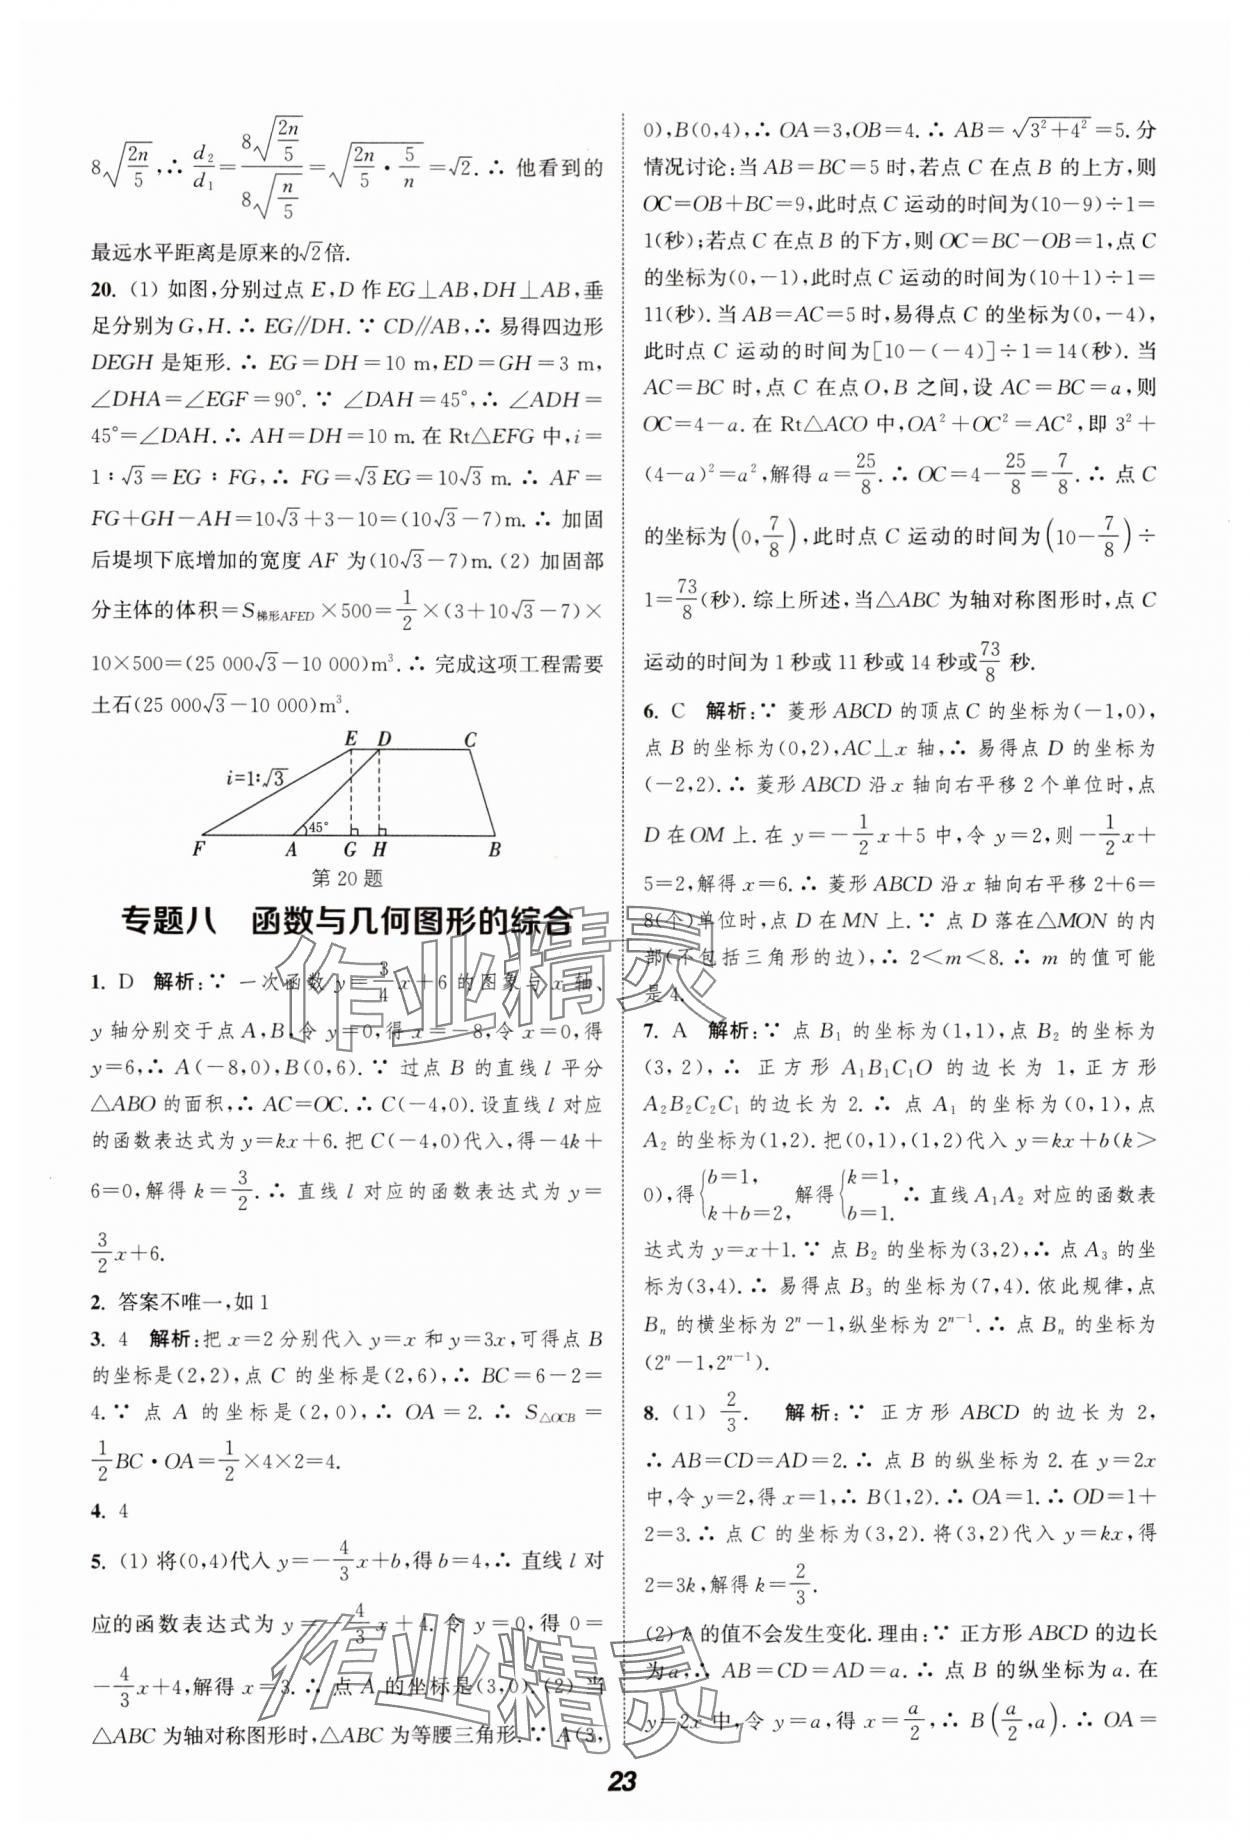 8√(2n/5),∴ d₂/d₁=8√(2n/5)/8√(n/5)=√(2n/5·5/n)=√2.∴ 他看到的
最远水平距离是原来的√2倍.
20. (1) 如图,分别过点 E,D 作 EG⊥AB,DH⊥AB,垂
足分别为 G,H.∴ EG∥DH.∵ CD∥AB,∴ 易得四边形
DEGH 是矩形.∴ EG=DH=10 m,ED=GH=3 m,
∠DHA=∠EGF=90°.∵ ∠DAH=45°,∴ ∠ADH=
45°=∠DAH.∴ AH=DH=10 m.在 Rt△EFG 中,i=
1∶√3=EG∶FG,∴ FG=√3EG=10√3 m.∴ AF=
FG+GH-AH=10√3+3-10=(10√3-7)m.∴ 加固
后堤坝下底增加的宽度 AF 为(10√3-7)m. (2) 加固部
分主体的体积=S梯形AFED×500=1/2×(3+10√3-7)×
10×500=(25 000√3-10 000)m³.∴ 完成这项工程需要
土石(25 000√3-10 000)m³.
E D C
i=1∶√3
45°
F A G H B
第20题
专题八 函数与几何图形的综合
1. D 解析:∵ 一次函数 y=3/4x+6 的图象与 x 轴、
y 轴分别交于点 A,B,令 y=0,得 x=-8,令 x=0,得
y=6,∴ A(-8,0),B(0,6).∵ 过点 B 的直线 l 平分
△ABO 的面积,∴ AC=OC.∴ C(-4,0).设直线 l 对应
的函数表达式为 y=kx+6.把 C(-4,0)代入,得-4k+
6=0,解得 k=3/2.∴ 直线 l 对应的函数表达式为 y=
3/2x+6.
2. 答案不唯一,如 1
3. 4 解析:把 x=2 分别代入 y=x 和 y=3x,可得点 B
的坐标是(2,2),点 C 的坐标是(2,6),∴ BC=6-2=
4.∵ 点 A 的坐标是(2,0),∴ OA=2.∴ S△OCB=
1/2BC·OA=1/2×4×2=4.
4. 4
5. (1) 将(0,4)代入 y=-4/3x+b,得 b=4,∴ 直线 l 对
应的函数表达式为 y=-4/3x+4.令 y=0,得 0=
-4/3x+4,解得 x=3.∴ 点 A 的坐标是(3,0). (2) 当
△ABC 为轴对称图形时,△ABC 为等腰三角形.∵ A(3,
0),B(0,4),∴ OA=3,OB=4.∴ AB=√(3²+4²)=5.分
情况讨论:当 AB=BC=5 时,若点 C 在点 B 的上方,则
OC=OB+BC=9,此时点 C 运动的时间为(10-9)÷1=
1(秒);若点 C 在点 B 的下方,则 OC=BC-OB=1,点 C
的坐标为(0,-1),此时点 C 运动的时间为(10+1)÷1=
11(秒).当 AB=AC=5 时,易得点 C 的坐标为(0,-4),
此时点 C 运动的时间为[10-(-4)]÷1=14(秒).当
AC=BC 时,点 C 在点 O,B 之间,设 AC=BC=a,则
OC=4-a.在 Rt△ACO 中,OA²+OC²=AC²,即 3²+
(4-a)²=a²,解得 a=25/8.∴ OC=4-25/8=7/8.∴ 点 C
的坐标为(0,7/8),此时点 C 运动的时间为(10-7/8)÷
1=73/8(秒).综上所述,当△ABC 为轴对称图形时,点 C
运动的时间为 1 秒或 11 秒或 14 秒或73/8 秒.
6. C 解析:∵ 菱形 ABCD 的顶点 C 的坐标为(-1,0),
点 B 的坐标为(0,2),AC⊥x 轴,∴ 易得点 D 的坐标为
(-2,2).∴ 菱形 ABCD 沿 x 轴向右平移 2 个单位时,点
D 在 OM 上.在 y=-1/2x+5 中,令 y=2,则-1/2x+
5=2,解得 x=6.∴ 菱形 ABCD 沿 x 轴向右平移 2+6=
8(个)单位时,点 D 在 MN 上.∵ 点 D 落在△MON 的内
部(不包括三角形的边),∴ 2<m<8.∴ m 的值可能
是 4.
7. A 解析:∵ 点 B₁ 的坐标为(1,1),点 B₂ 的坐标为
(3,2),∴ 正方形 A₁B₁C₁O 的边长为 1,正方形
A₂B₂C₂C₁ 的边长为 2.∴ 点 A₁ 的坐标为(0,1),点
A₂ 的坐标为(1,2).把(0,1),(1,2)代入 y=kx+b(k>
0),得{b=1, k+b=2, 解得{k=1, b=1. ∴ 直线 A₁A₂ 对应的函数表
达式为 y=x+1.∵ 点 B₂ 的坐标为(3,2),∴ 点 A₃ 的坐
标为(3,4).∴ 易得点 B₃ 的坐标为(7,4).依此规律,点
Bₙ 的横坐标为 2ⁿ-1,纵坐标为 2ⁿ⁻¹.∴ 点 Bₙ 的坐标为
(2ⁿ-1,2ⁿ⁻¹).
8. (1) 2/3. 解析:∵ 正方形 ABCD 的边长为 2,
∴ AB=CD=AD=2.∴ 点 B 的纵坐标为 2.在 y=2x
中,令 y=2,得 x=1,∴ B(1,2).∴ OA=1.∴ OD=1+
2=3.∴ 点 C 的坐标为(3,2).将(3,2)代入 y=kx,得
2=3k,解得 k=2/3.
(2) k 的值不会发生变化.理由:∵ 正方形 ABCD 的边长
为 a,∴ AB=CD=AD=a.∴ 点 B 的纵坐标为 a.在
y=2x 中,令 y=a,得 x=a/2,∴ B(a/2,a).∴ OA=
作业精灵
作业精灵
23